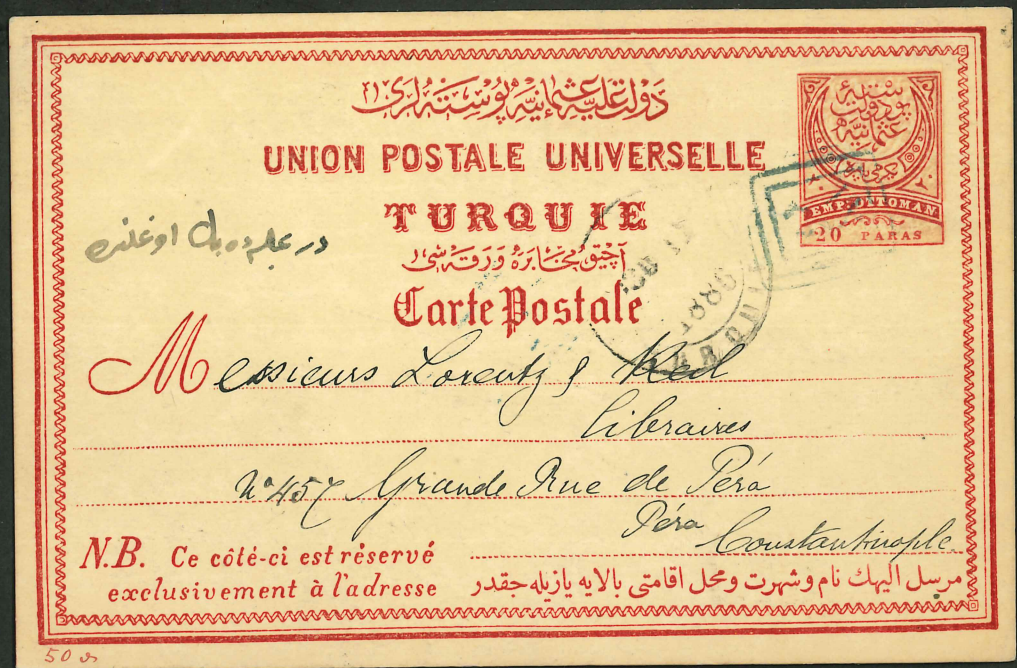 دولت عليه عثمانيه پوسته لرى
UNION POSTALE UNIVERSELLE
TURQUIE
آچيق مخابره ورقه سى
Carte Postale
EMP: OTTOMAN
20 PARAS
1886
Messieurs Lorentz & Keil
libraires
No 457 Grande Rue de Péra
Péra
Constantinople
N.B. Ce côté-ci est réservé
exclusivement à l'adresse
مرسل اليهك نام و شهرت و محل اقامتى بالايه يازيله جقدر
50